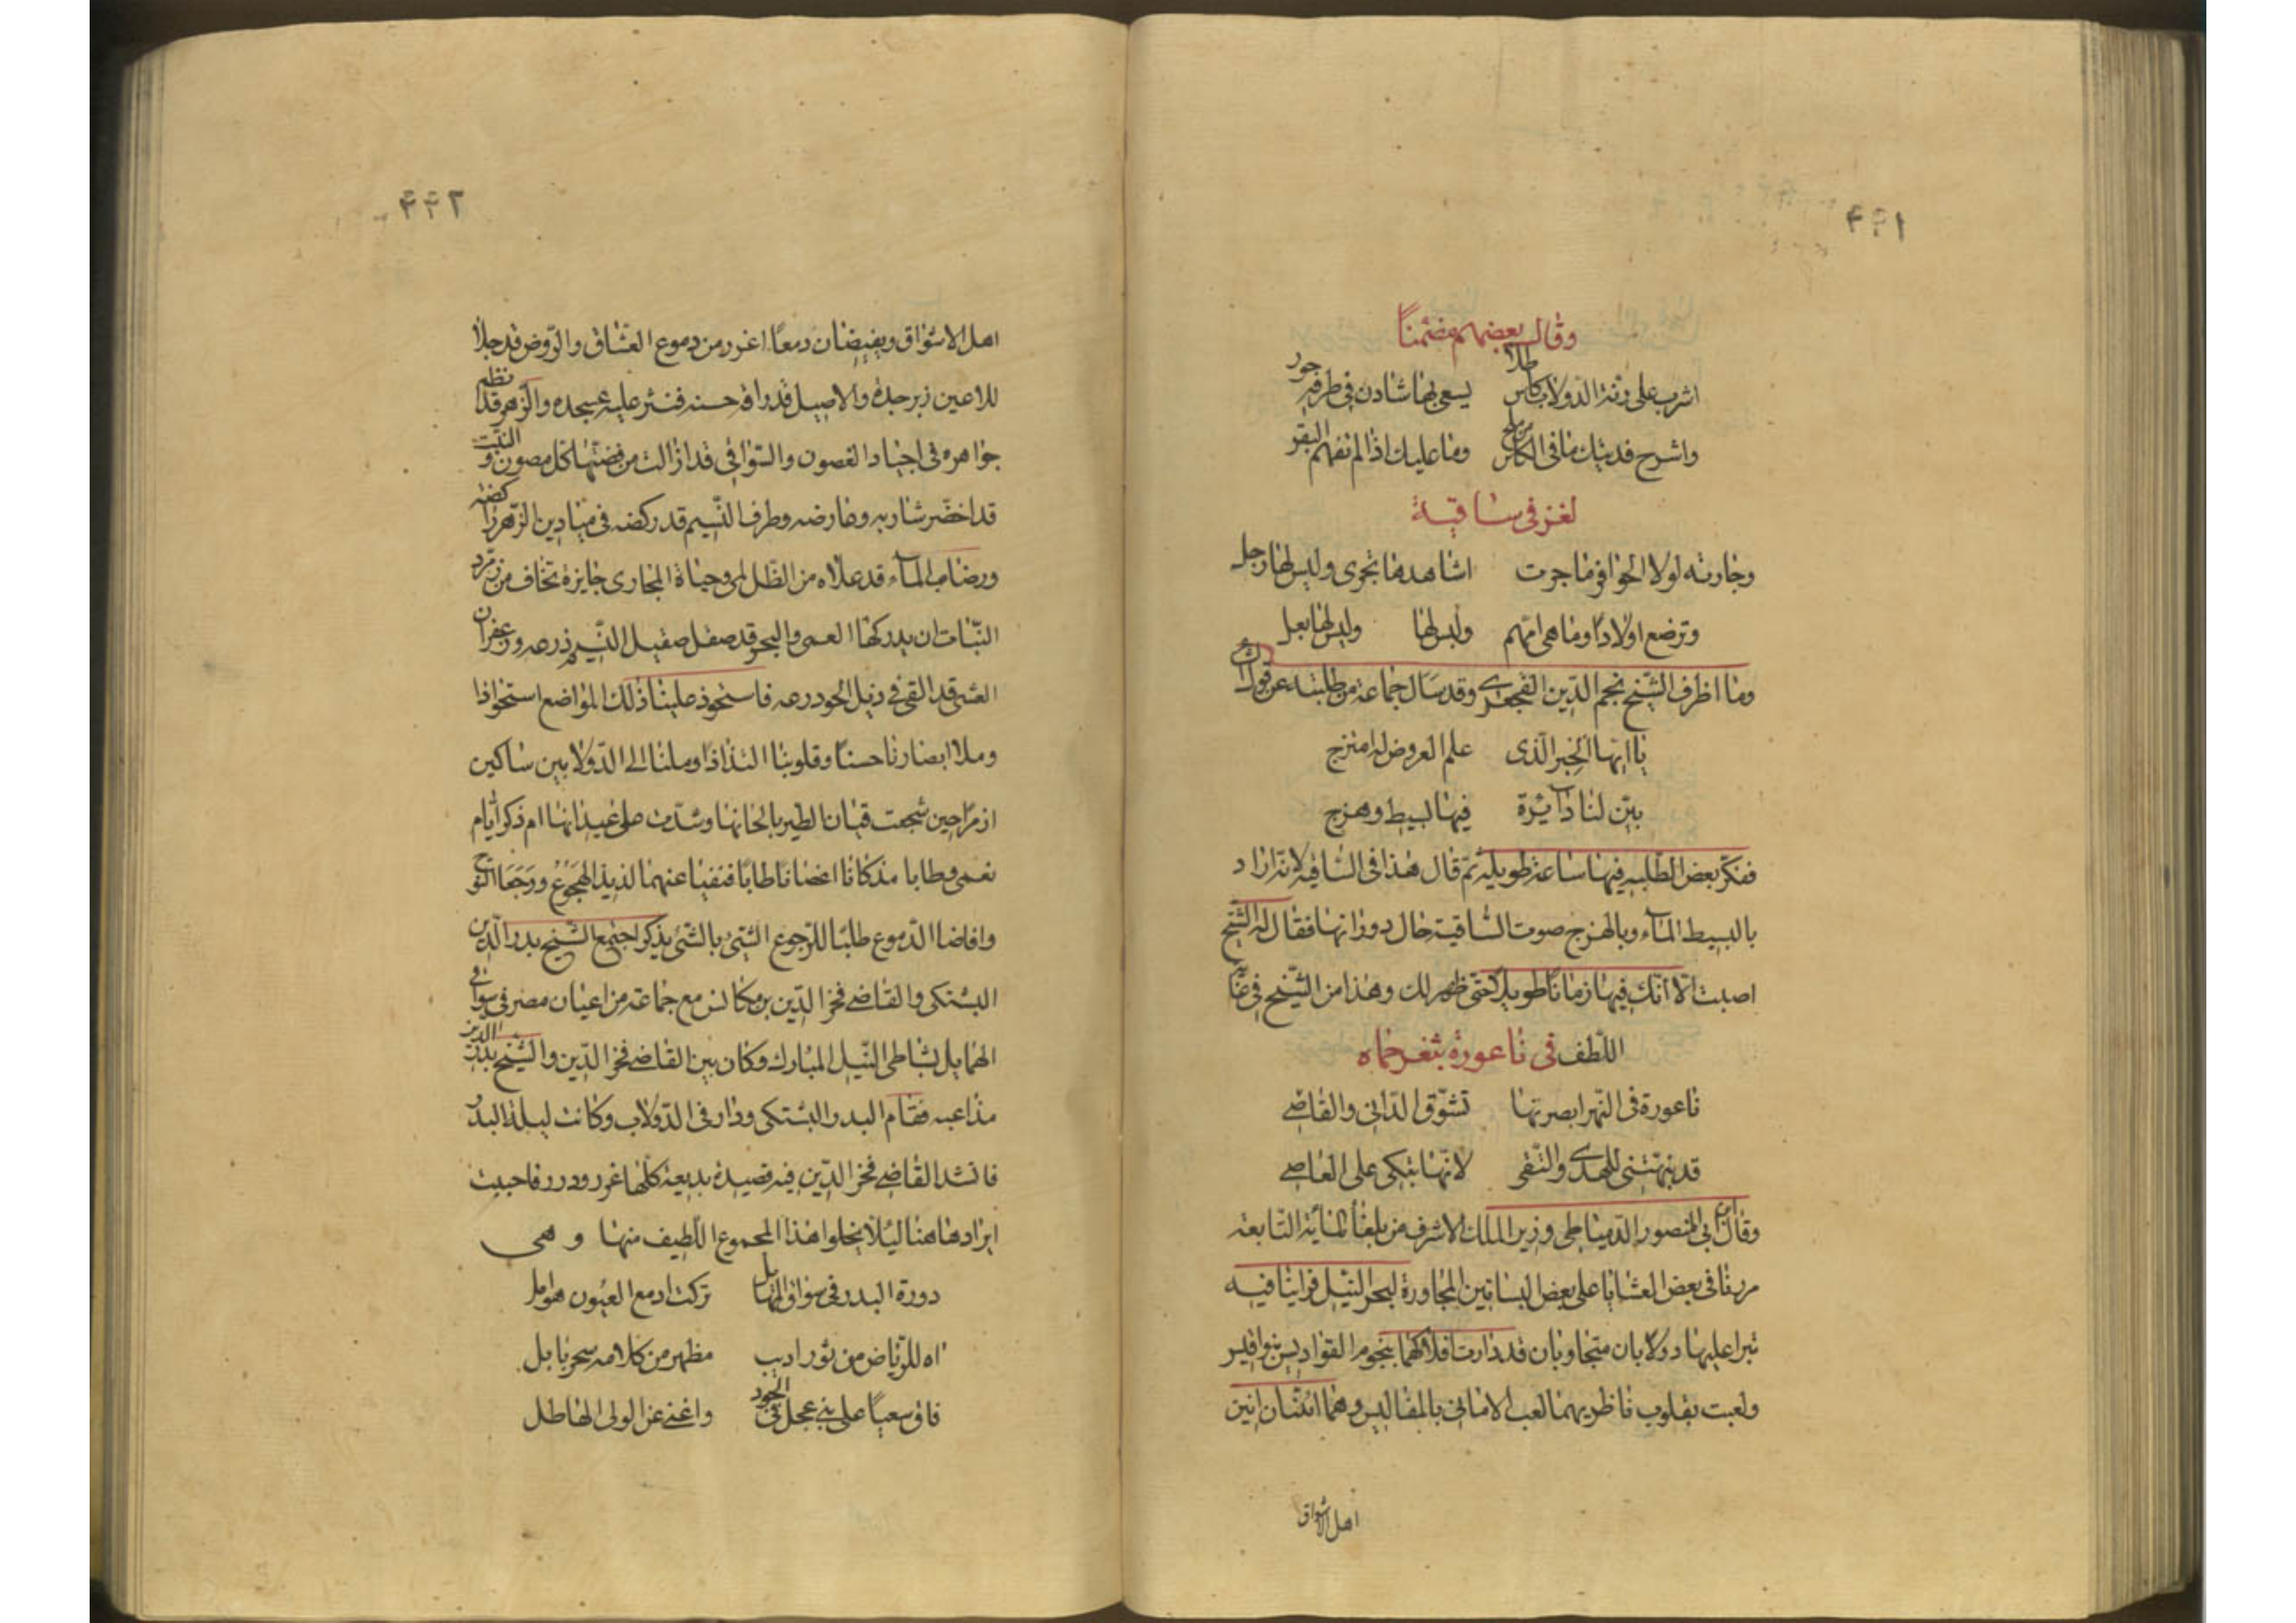 ٤٤١
وقال بعضهم مضمناً
اشرب على رنة الدولاب كاس طلا يسعى بها شادن فى طرفه حور
واشرح فديتك ما فى الكاس من ملح وما عليك اذا لم تفهم البقر
لغز فى ساقية
وجارية لولا الحوافر ما جرت اشاهدها تجرى وليس لها رجل
وترضع اولادا وما هى امهم وليس لها وليس لها بعل
وما اظرف الشيخ نجم الدين القجفرى وقد سال جماعة من طلبته عن قول
يا ايها الحبر الذى علم العروض له امتزج
بين لنا دايرة فيها بسيط وهزج
ففكر بعض الطلبه فيها ساعة طويلة ثم قال هذا فى الساقيه لانه اراد
بالبسيط الماء وبالهزج صوت الساقية حال دورانها فقال له الشيخ
اصبت الا انك فيها زمانا طويلا حتى ظهر لك وهذا من الشيخ فى غاية
اللطف فى ناعورة بثغر حماه
ناعورة فى النهر ابصرتها تشوق الدانى والقاصى
قد نبهتنى للهدى والتقى لانها تبكى على العاصى
وقال ابن ابى المنصور الدمياطى وزير الملك الاشرف من بلغا المأية التابعة
مررنا فى بعض العشايا على بعض البساتين المجاورة لبحر النيل فراينا فيه
بئرا عليها دولابان متجاوبان قد دارت افلاكهما بنجوم القواديس
ولعبت بقلوب ناظريهما لعب الامانى بالمفاليس وهما ائنان انين
اهل الاشواق
٤٤٢
اهل الاشواق ويفيضان دمعاً اغزر من دموع العشاق والروض قد جلا
للاعين زبرجده والاصيل قد راقه حسنه فنثر عليه عسجده والزهر قد نظم
جواهره فى اجياد الغصون والسواقى قد ازالت من فضتها كل مصون والنبت
قد اخضر شاربه وعارضه وطرف النسيم قد ركضه فى ميادين الزهر راكضه
ورضاب الماء قد علاه من الظل لمى وحياة المجارى حايرة تخاف من زمرد
النبات ان يدركها العمى والبحر قد صقل صقيل النسيم ذرعه وزعفران
العشى قد القى فى ذيل الجو درعه فاستحوذ علينا ذلك المواضع استحواذا
وملا ابصارنا حسنا وقلوبنا التذاذا وملنا الى الدولابين شاكين
ازمرا حين شجعت قيان الطير بالحانها وشدت على عيدانها ام ذكرا ايام
نعمى وطابا مذ كانا اغصانا طابا فنفيا عنهما لذيذ الهجوع ورجعا النوح
وافاضا الدموع طلبا للرجوع الشئ بالشئ يذكر اجتمع الشيخ بدر الدين
البشتكى والقاضى فخر الدين بن مكانس مع جماعة من اعيان مصر فى سواقى
الهمايل بشاطى النيل المبارك وكان بين القاضى فخر الدين والشيخ بدر الدين
مذاعبه فقام البدر البشتكى ودار فى الدولاب وكانت ليلة البدر
فانشد القاضى فخر الدين فيه قصيدة بديعة كلها غرر ودرر فاحببت
ايرادها هنا ليئلا يخلوا هذا المجموع اللطيف منها و هى
دورة البدر فى سواقى الهمايل تركت ادمع العيون هوامل
اه للرياض من ثور اديب مظهر من كلامه سحر بابل
فاق سعيا على بنى عجل فى الجود واغنى عن الولى الهاطل